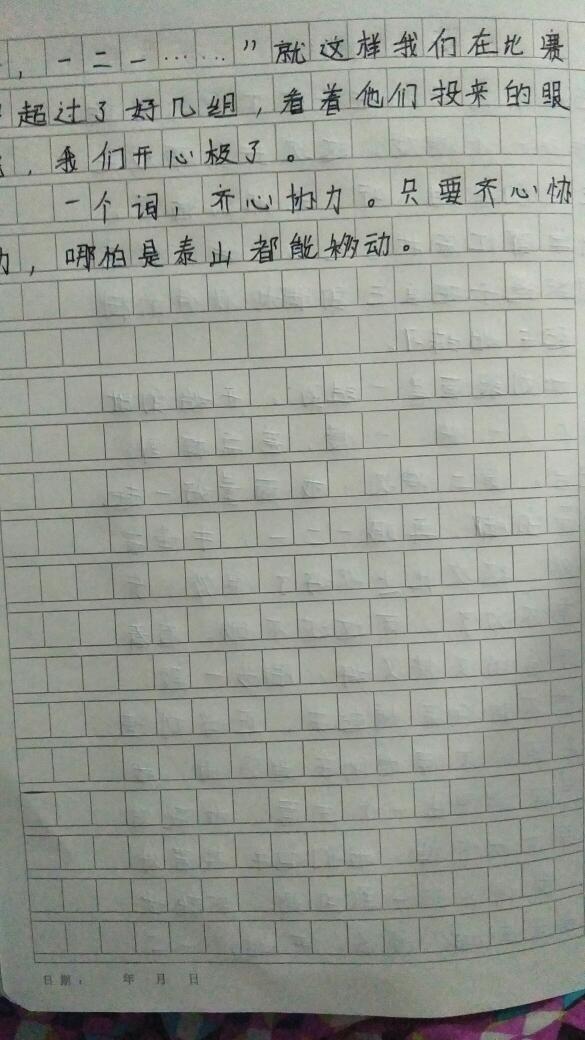 ，一二一……”就这样我们在比赛
超过了好几组，看着他们投来的眼
，我们开心极了。
一个词，齐心协力。只要齐心协
力，哪怕是泰山都能移动。
日期： 年 月 日